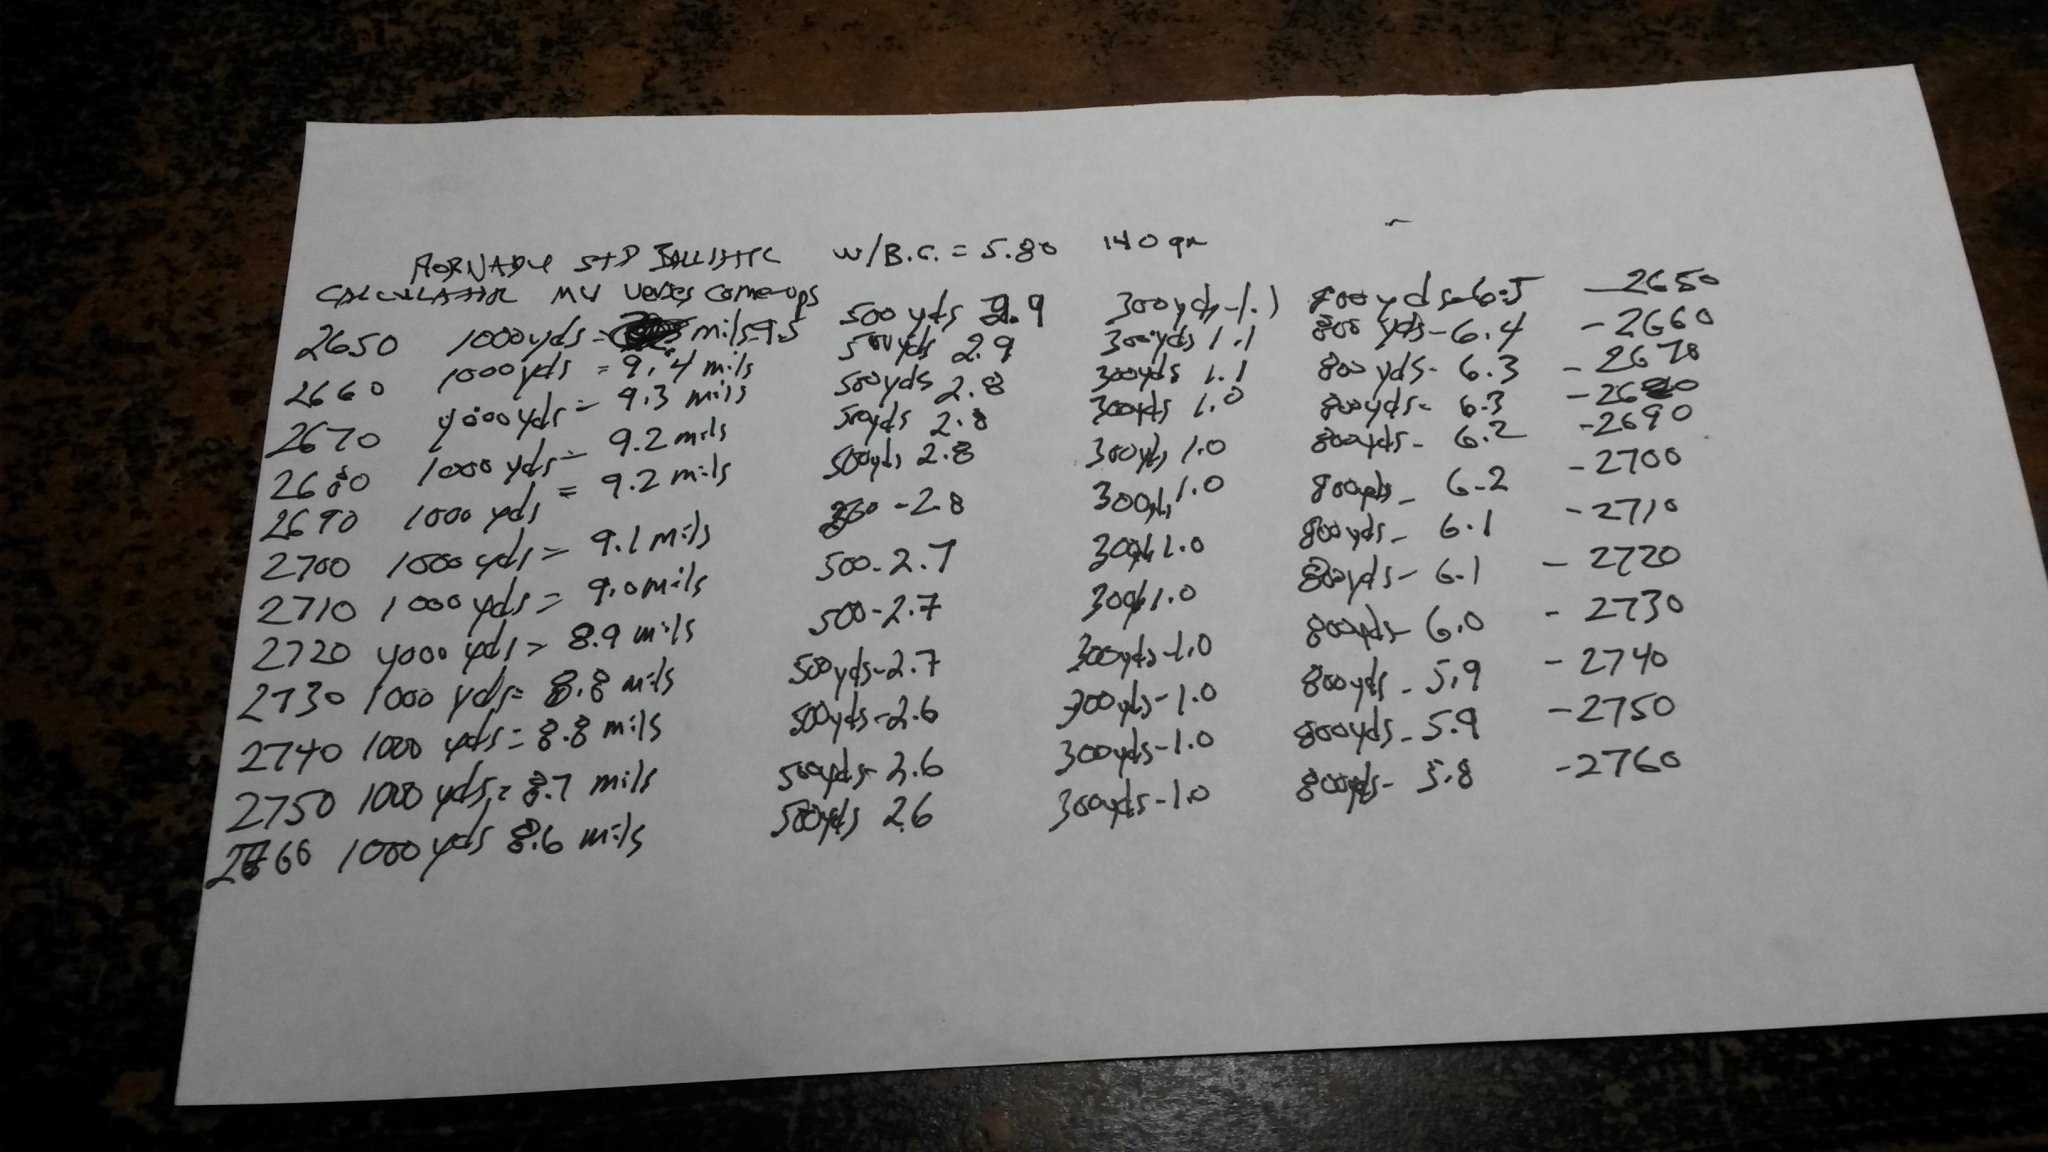 HORNADY STD BALLISTIC W/B.C. = 5.80 140 gr
CALCULATOR MV Verses Come-ups
2650 1000 yds = mils-9.5 500 yds 2.9 300 yds-1.1 800 yds-6.5 -2650
2660 1000 yds = 9.4 mils 500 yds 2.9 300 yds 1.1 800 yds-6.4 -2660
2670 1000 yds = 9.3 mils 500 yds 2.8 300 yds 1.1 800 yds- 6.3 -2670
2680 1000 yds = 9.2 mils 500 yds 2.8 300 yds 1.0 800 yds- 6.3 -2680
2690 1000 yds = 9.2 mils 500 yds 2.8 300 yds 1.0 800 yds- 6.2 -2690
2700 1000 yds = 9.1 mils -2.8 300 yds 1.0 800 yds- 6.2 -2700
2710 1000 yds = 9.0 mils 500-2.7 300 yds 1.0 800 yds- 6.1 -2710
2720 1000 yds = 8.9 mils 500-2.7 300 yds 1.0 800 yds- 6.1 -2720
2730 1000 yds = 8.8 mils 500 yds-2.7 300 yds-1.0 800 yds- 6.0 -2730
2740 1000 yds = 8.8 mils 500 yds-2.6 300 yds-1.0 800 yds- 5.9 -2740
2750 1000 yds = 8.7 mils 500 yds-2.6 300 yds-1.0 800 yds- 5.9 -2750
2760 1000 yds 8.6 mils 500 yds 2.6 300 yds-1.0 800 yds- 5.8 -2760